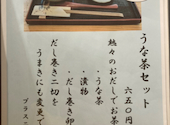 うな茶セット
六五〇円
魅々のおだしでお茶
・うな茶
・漬物
・だし巻き卵
だし巻き二切を
うまきにも変更で
プラス